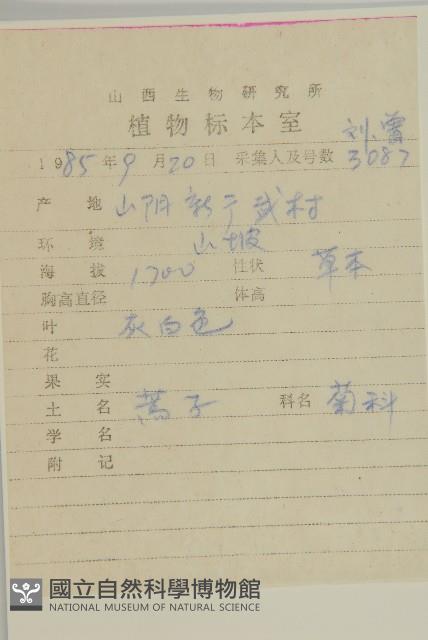 山西生物研究所
植物标本室
刘、曾
1985年9月20日 采集人及号数 3087
产 地 山阴 村
环 境 山坡
海 拔 1700 性状 草本
胸高直径 体高
叶 灰白色
花
果 实
土 名 蒿子 科名 菊科
学 名
附 记
國立自然科學博物館
NATIONAL MUSEUM OF NATURAL SCIENCE